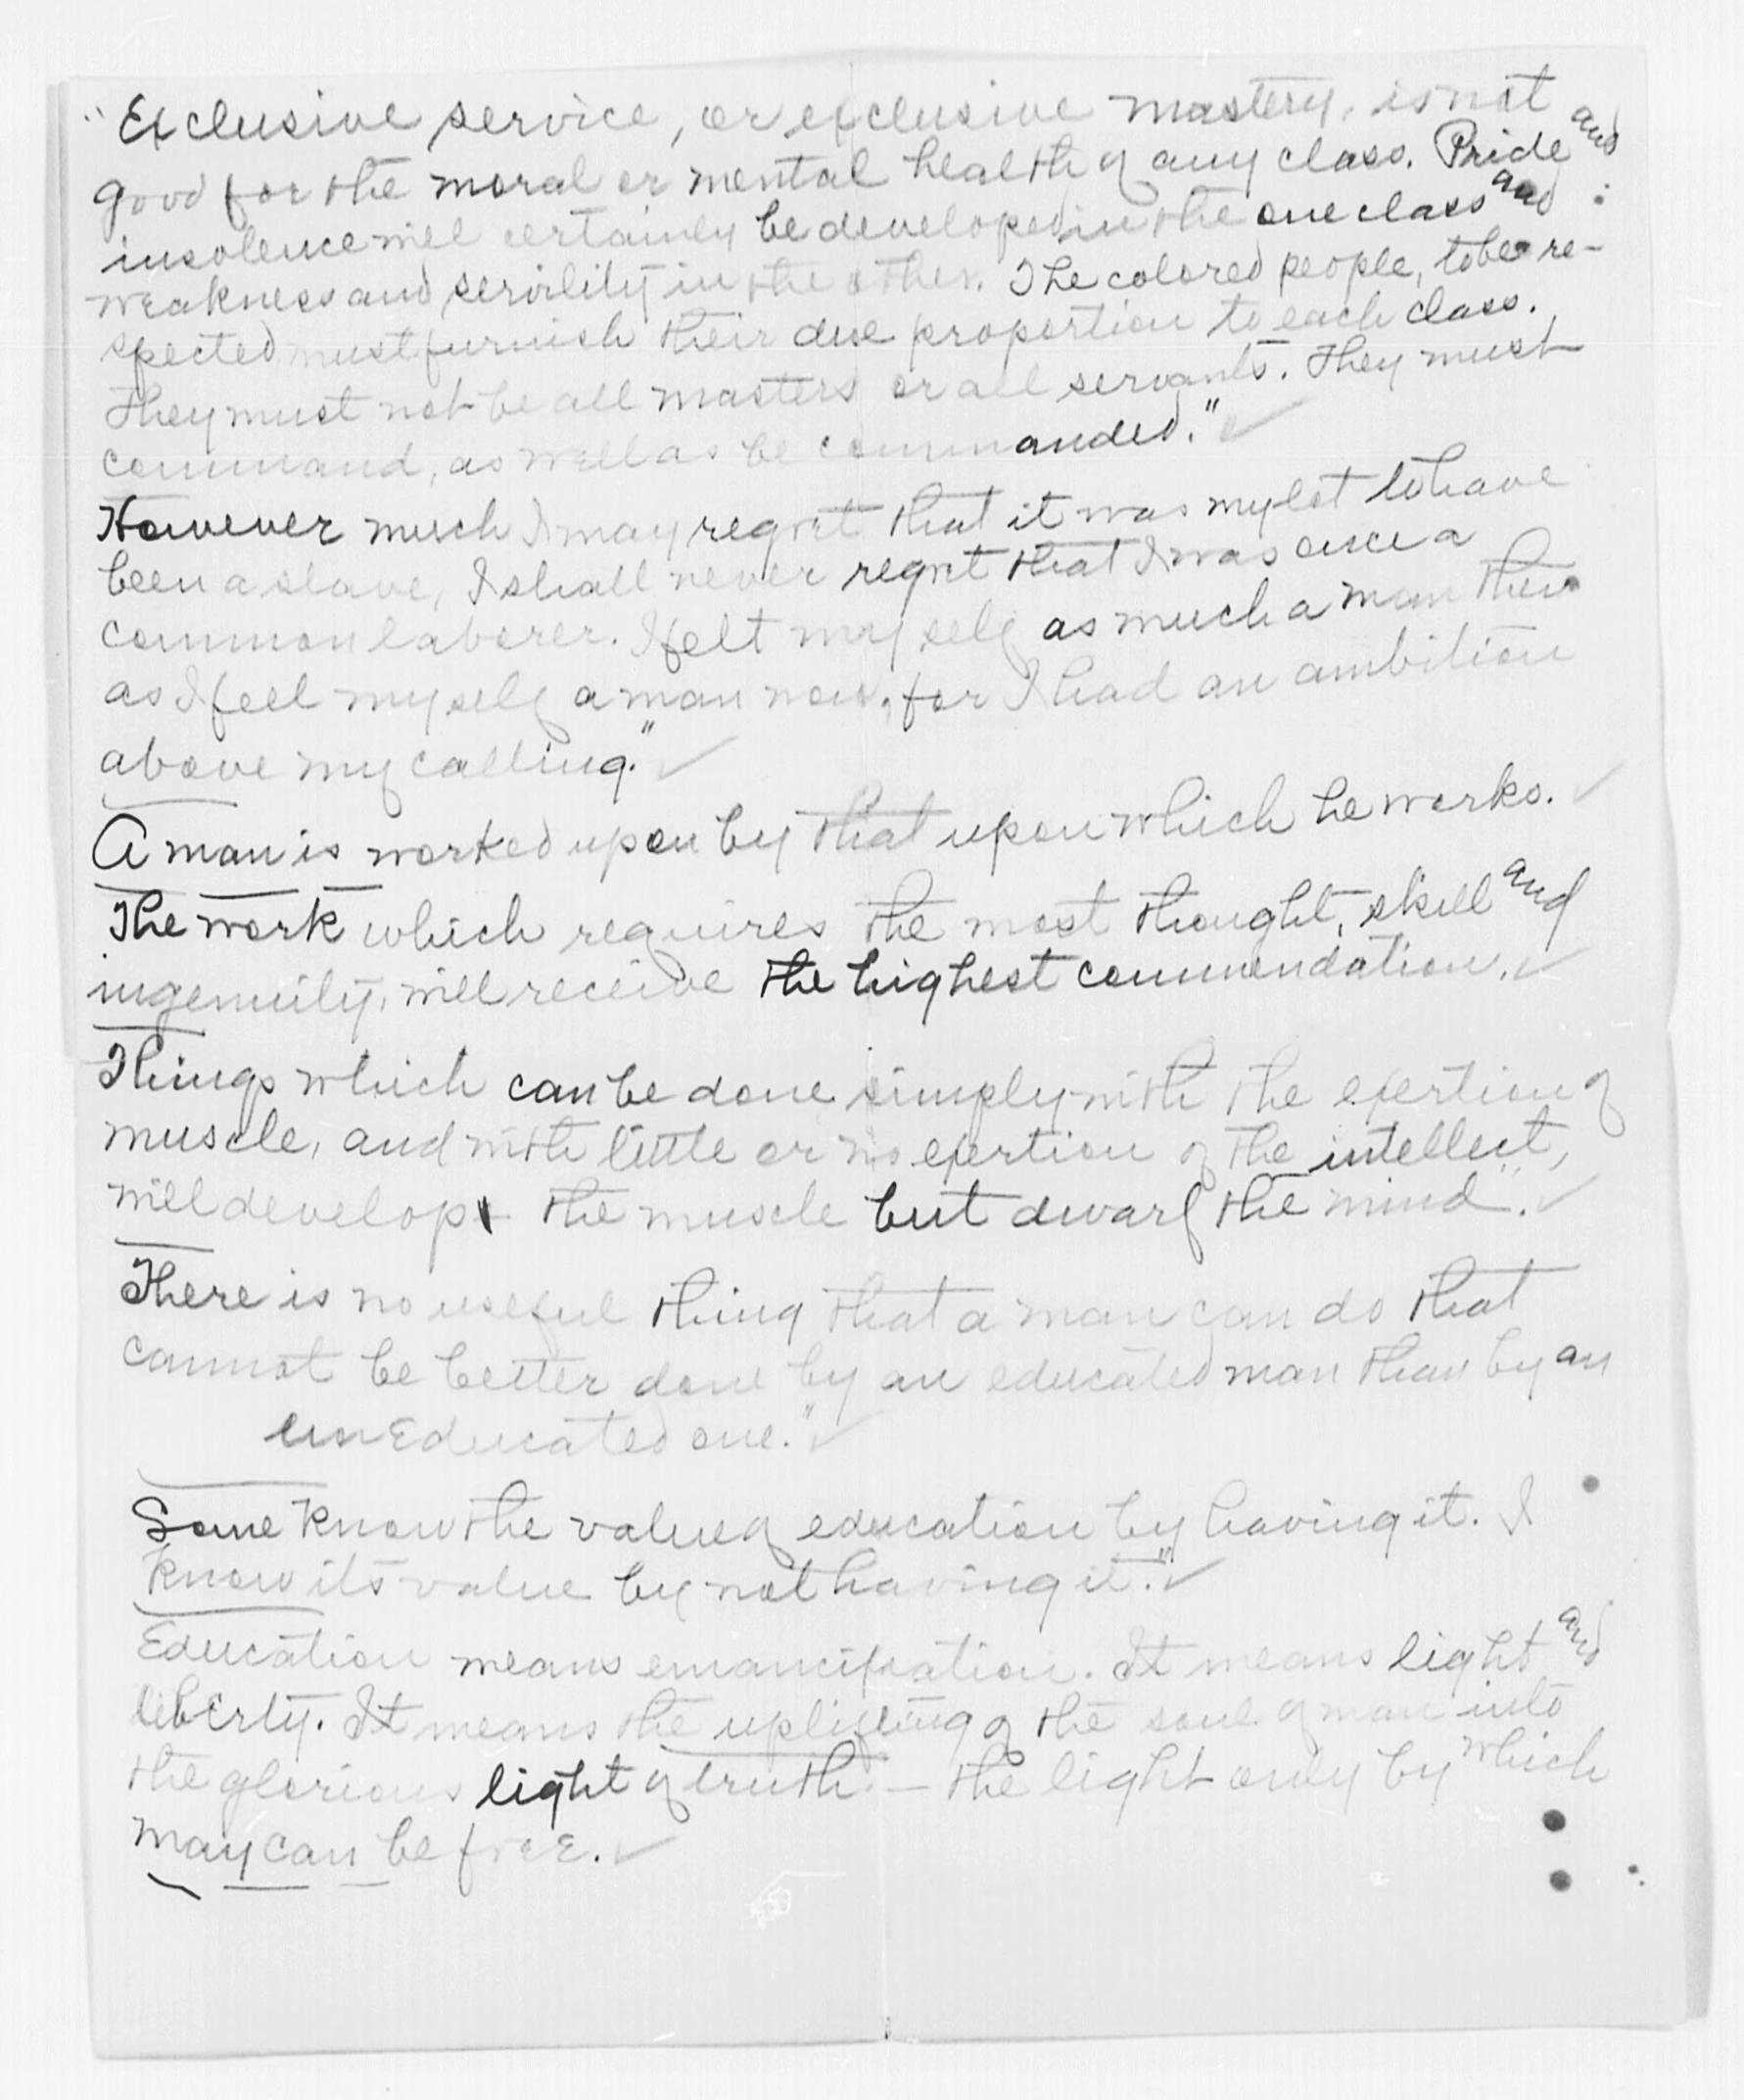 "Exclusive service, or exclusive mastery, is not
good for the moral or mental health of any class. Pride and
insolence will certainly be developed in the one class and
weakness and servility in the other. The colored people, to be re-
spected must furnish their due proportion to each class.
They must not be all masters or all servants. They must
command, as well as be commanded."
However much I may regret that it was my lot to have
been a slave, I shall never regret that I was once a
common laborer. I felt myself as much a man then
as I feel myself a man now, for I had an ambition
above my calling."
A man is worked upon by that upon which he works.
The work which requires the most thought, skill and
ingenuity, will receive the highest commendation.
Things which can be done simply with the exertion of
muscle, and with little or no exertion of the intellect,
will develop the muscle but dwarf the mind."
There is no useful thing that a man can do that
cannot be better done by an educated man than by an
uneducated one."
Some know the value of education by having it. I
know its value by not having it."
Education means emancipation. It means light and
liberty. It means the uplifting of the soul of man into
the glorious light of truth — the light only by which
may can be free.